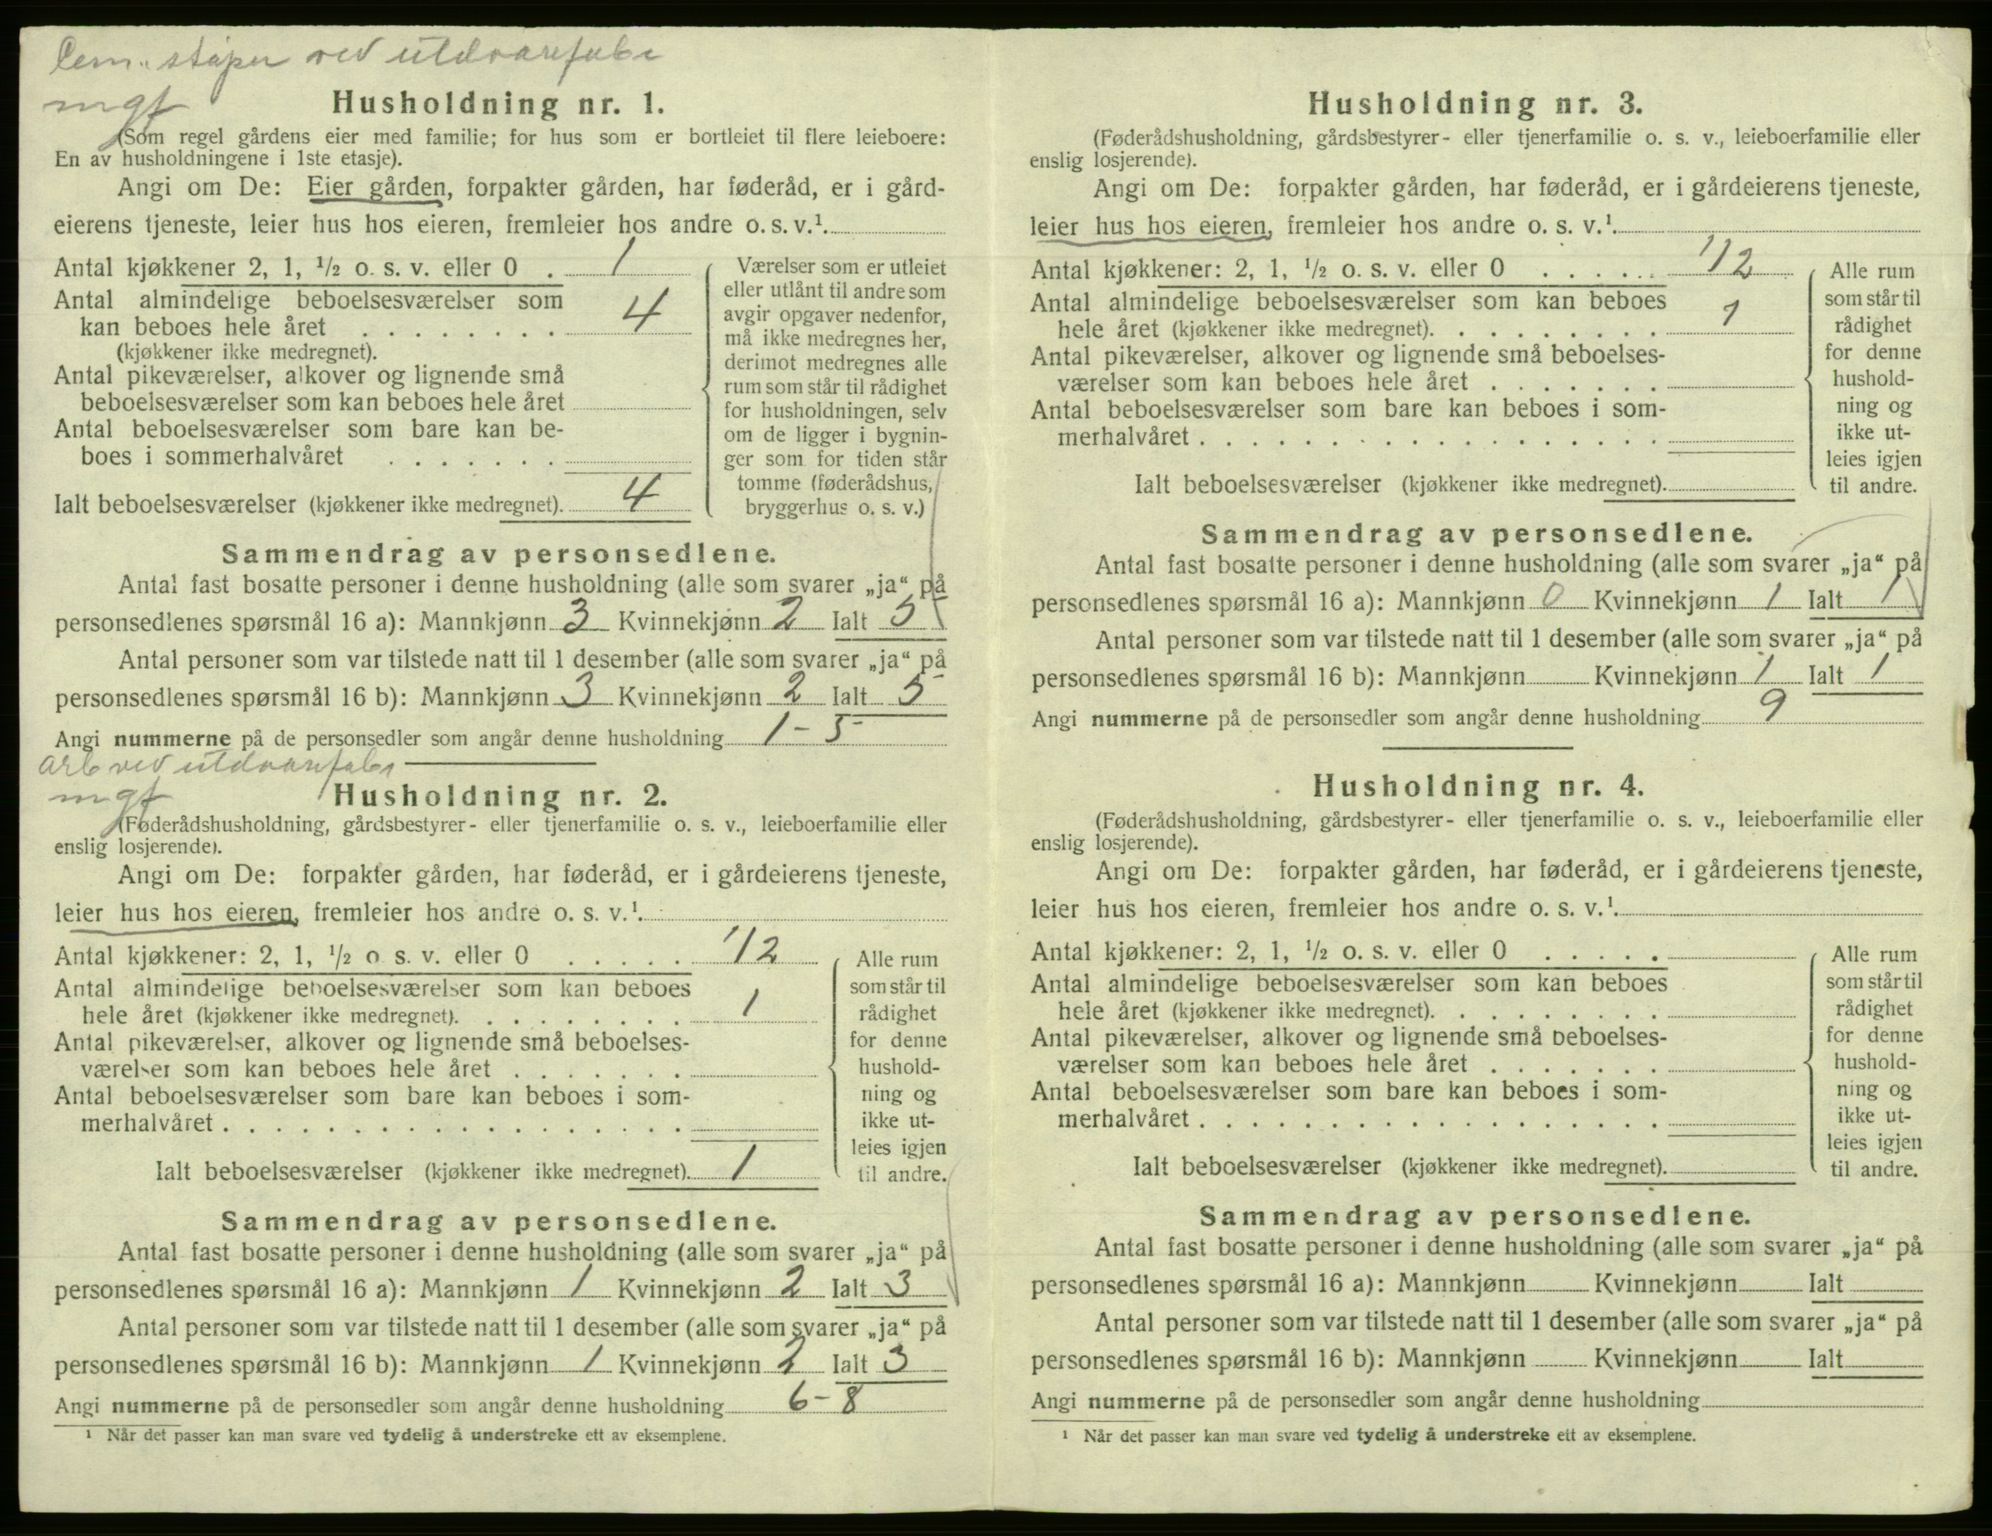 Cem. støper ved utdvarefabr
mgf
Husholdning nr. 1.
(Som regel gårdens eier med familie; for hus som er bortleiet til flere leieboere:
En av husholdningene i 1ste etasje).
Angi om De: Eier gården, forpakter gården, har føderåd, er i gård-
eierens tjeneste, leier hus hos eieren, fremleier hos andre o. s. v.¹
Antal kjøkkener 2, 1, ½ o. s. v. eller 0 . 1
Antal almindelige beboelsesværelser som
kan beboes hele året . . . . . . . . 4
(kjøkkener ikke medregnet).
Antal pikeværelser, alkover og lignende små
beboelsesværelser som kan beboes hele året
Antal beboelsesværelser som bare kan be-
boes i sommerhalvåret . . . . . . .
Ialt beboelsesværelser (kjøkkener ikke medregnet). 4
Værelser som er utleiet
eller utlånt til andre som
avgir opgaver nedenfor,
må ikke medregnes her,
derimot medregnes alle
rum som står til rådighet
for husholdningen, selv
om de ligger i bygnin-
ger som for tiden står
tomme (føderådshus,
bryggerhus o. s. v.)
Sammendrag av personsedlene.
Antal fast bosatte personer i denne husholdning (alle som svarer „ja“ på
personsedlenes spørsmål 16 a): Mannkjønn 3 Kvinnekjønn 2 Ialt 5
Antal personer som var tilstede natt til 1 desember (alle som svarer „ja“ på
personsedlenes spørsmål 16 b): Mannkjønn 3 Kvinnekjønn 2 Ialt 5
Angi nummerne på de personsedler som angår denne husholdning 1-5
arb ved utdvarefabr
mgf
Husholdning nr. 2.
(Føderådshusholdning, gårdsbestyrer- eller tjenerfamilie o. s. v., leieboerfamilie eller
enslig losjerende).
Angi om De: forpakter gården, har føderåd, er i gårdeierens tjeneste,
leier hus hos eieren, fremleier hos andre o. s. v.¹
Antal kjøkkener: 2, 1, ½ o. s. v. eller 0 . . . . . ½
Antal almindelige beboelsesværelser som kan beboes
hele året (kjøkkener ikke medregnet). . . . . . . . . 1
Antal pikeværelser, alkover og lignende små beboelses-
værelser som kan beboes hele året . . . . . . .
Antal beboelsesværelser som bare kan beboes i som-
merhalvåret . . . . . . . . . . . . . . . . . .
Ialt beboelsesværelser (kjøkkener ikke medregnet). 1
Alle rum
som står til
rådighet
for denne
hushold-
ning og
ikke ut-
leies igjen
til andre.
Sammendrag av personsedlene.
Antal fast bosatte personer i denne husholdning (alle som svarer „ja“ på
personsedlenes spørsmål 16 a): Mannkjønn 1 Kvinnekjønn 2 Ialt 3
Antal personer som var tilstede natt til 1 desember (alle som svarer „ja“ på
personsedlenes spørsmål 16 b): Mannkjønn 1 Kvinnekjønn 2 Ialt 3
Angi nummerne på de personsedler som angår denne husholdning 6-8
¹ Når det passer kan man svare ved tydelig å understreke ett av eksemplene.
Husholdning nr. 3.
(Føderådshusholdning, gårdsbestyrer- eller tjenerfamilie o. s. v., leieboerfamilie eller
enslig losjerende).
Angi om De: forpakter gården, har føderåd, er i gårdeierens tjeneste,
leier hus hos eieren, fremleier hos andre o. s. v.¹
Antal kjøkkener: 2, 1, ½ o. s. v. eller 0 . . . . . ½
Antal almindelige beboelsesværelser som kan beboes
hele året (kjøkkener ikke medregnet). . . . . . . . . 1
Antal pikeværelser, alkover og lignende små beboelses-
værelser som kan beboes hele året . . . . . . .
Antal beboelsesværelser som bare kan beboes i som-
merhalvåret . . . . . . . . . . . . . . . . . .
Ialt beboelsesværelser (kjøkkener ikke medregnet).
Alle rum
som står til
rådighet
for denne
hushold-
ning og
ikke ut-
leies igjen
til andre.
Sammendrag av personsedlene.
Antal fast bosatte personer i denne husholdning (alle som svarer „ja“ på
personsedlenes spørsmål 16 a): Mannkjønn 0 Kvinnekjønn 1 Ialt 1
Antal personer som var tilstede natt til 1 desember (alle som svarer „ja“ på
personsedlenes spørsmål 16 b): Mannkjønn Kvinnekjønn 1 Ialt 1
Angi nummerne på de personsedler som angår denne husholdning 9
Husholdning nr. 4.
(Føderådshusholdning, gårdsbestyrer- eller tjenerfamilie o. s. v., leieboerfamilie eller
enslig losjerende).
Angi om De: forpakter gården, har føderåd, er i gårdeierens tjeneste,
leier hus hos eieren, fremleier hos andre o. s. v.¹
Antal kjøkkener: 2, 1, ½ o. s. v. eller 0 . . . . .
Antal almindelige beboelsesværelser som kan beboes
hele året (kjøkkener ikke medregnet). . . . . . . . .
Antal pikeværelser, alkover og lignende små beboelses-
værelser som kan beboes hele året . . . . . . .
Antal beboelsesværelser som bare kan beboes i som-
merhalvåret . . . . . . . . . . . . . . . . . .
Ialt beboelsesværelser (kjøkkener ikke medregnet).
Alle rum
som står til
rådighet
for denne
hushold-
ning og
ikke ut-
leies igjen
til andre.
Sammendrag av personsedlene.
Antal fast bosatte personer i denne husholdning (alle som svarer „ja“ på
personsedlenes spørsmål 16 a): Mannkjønn Kvinnekjønn Ialt
Antal personer som var tilstede natt til 1 desember (alle som svarer „ja“ på
personsedlenes spørsmål 16 b): Mannkjønn Kvinnekjønn Ialt
Angi nummerne på de personsedler som angår denne husholdning
¹ Når det passer kan man svare ved tydelig å understreke ett av eksemplene.